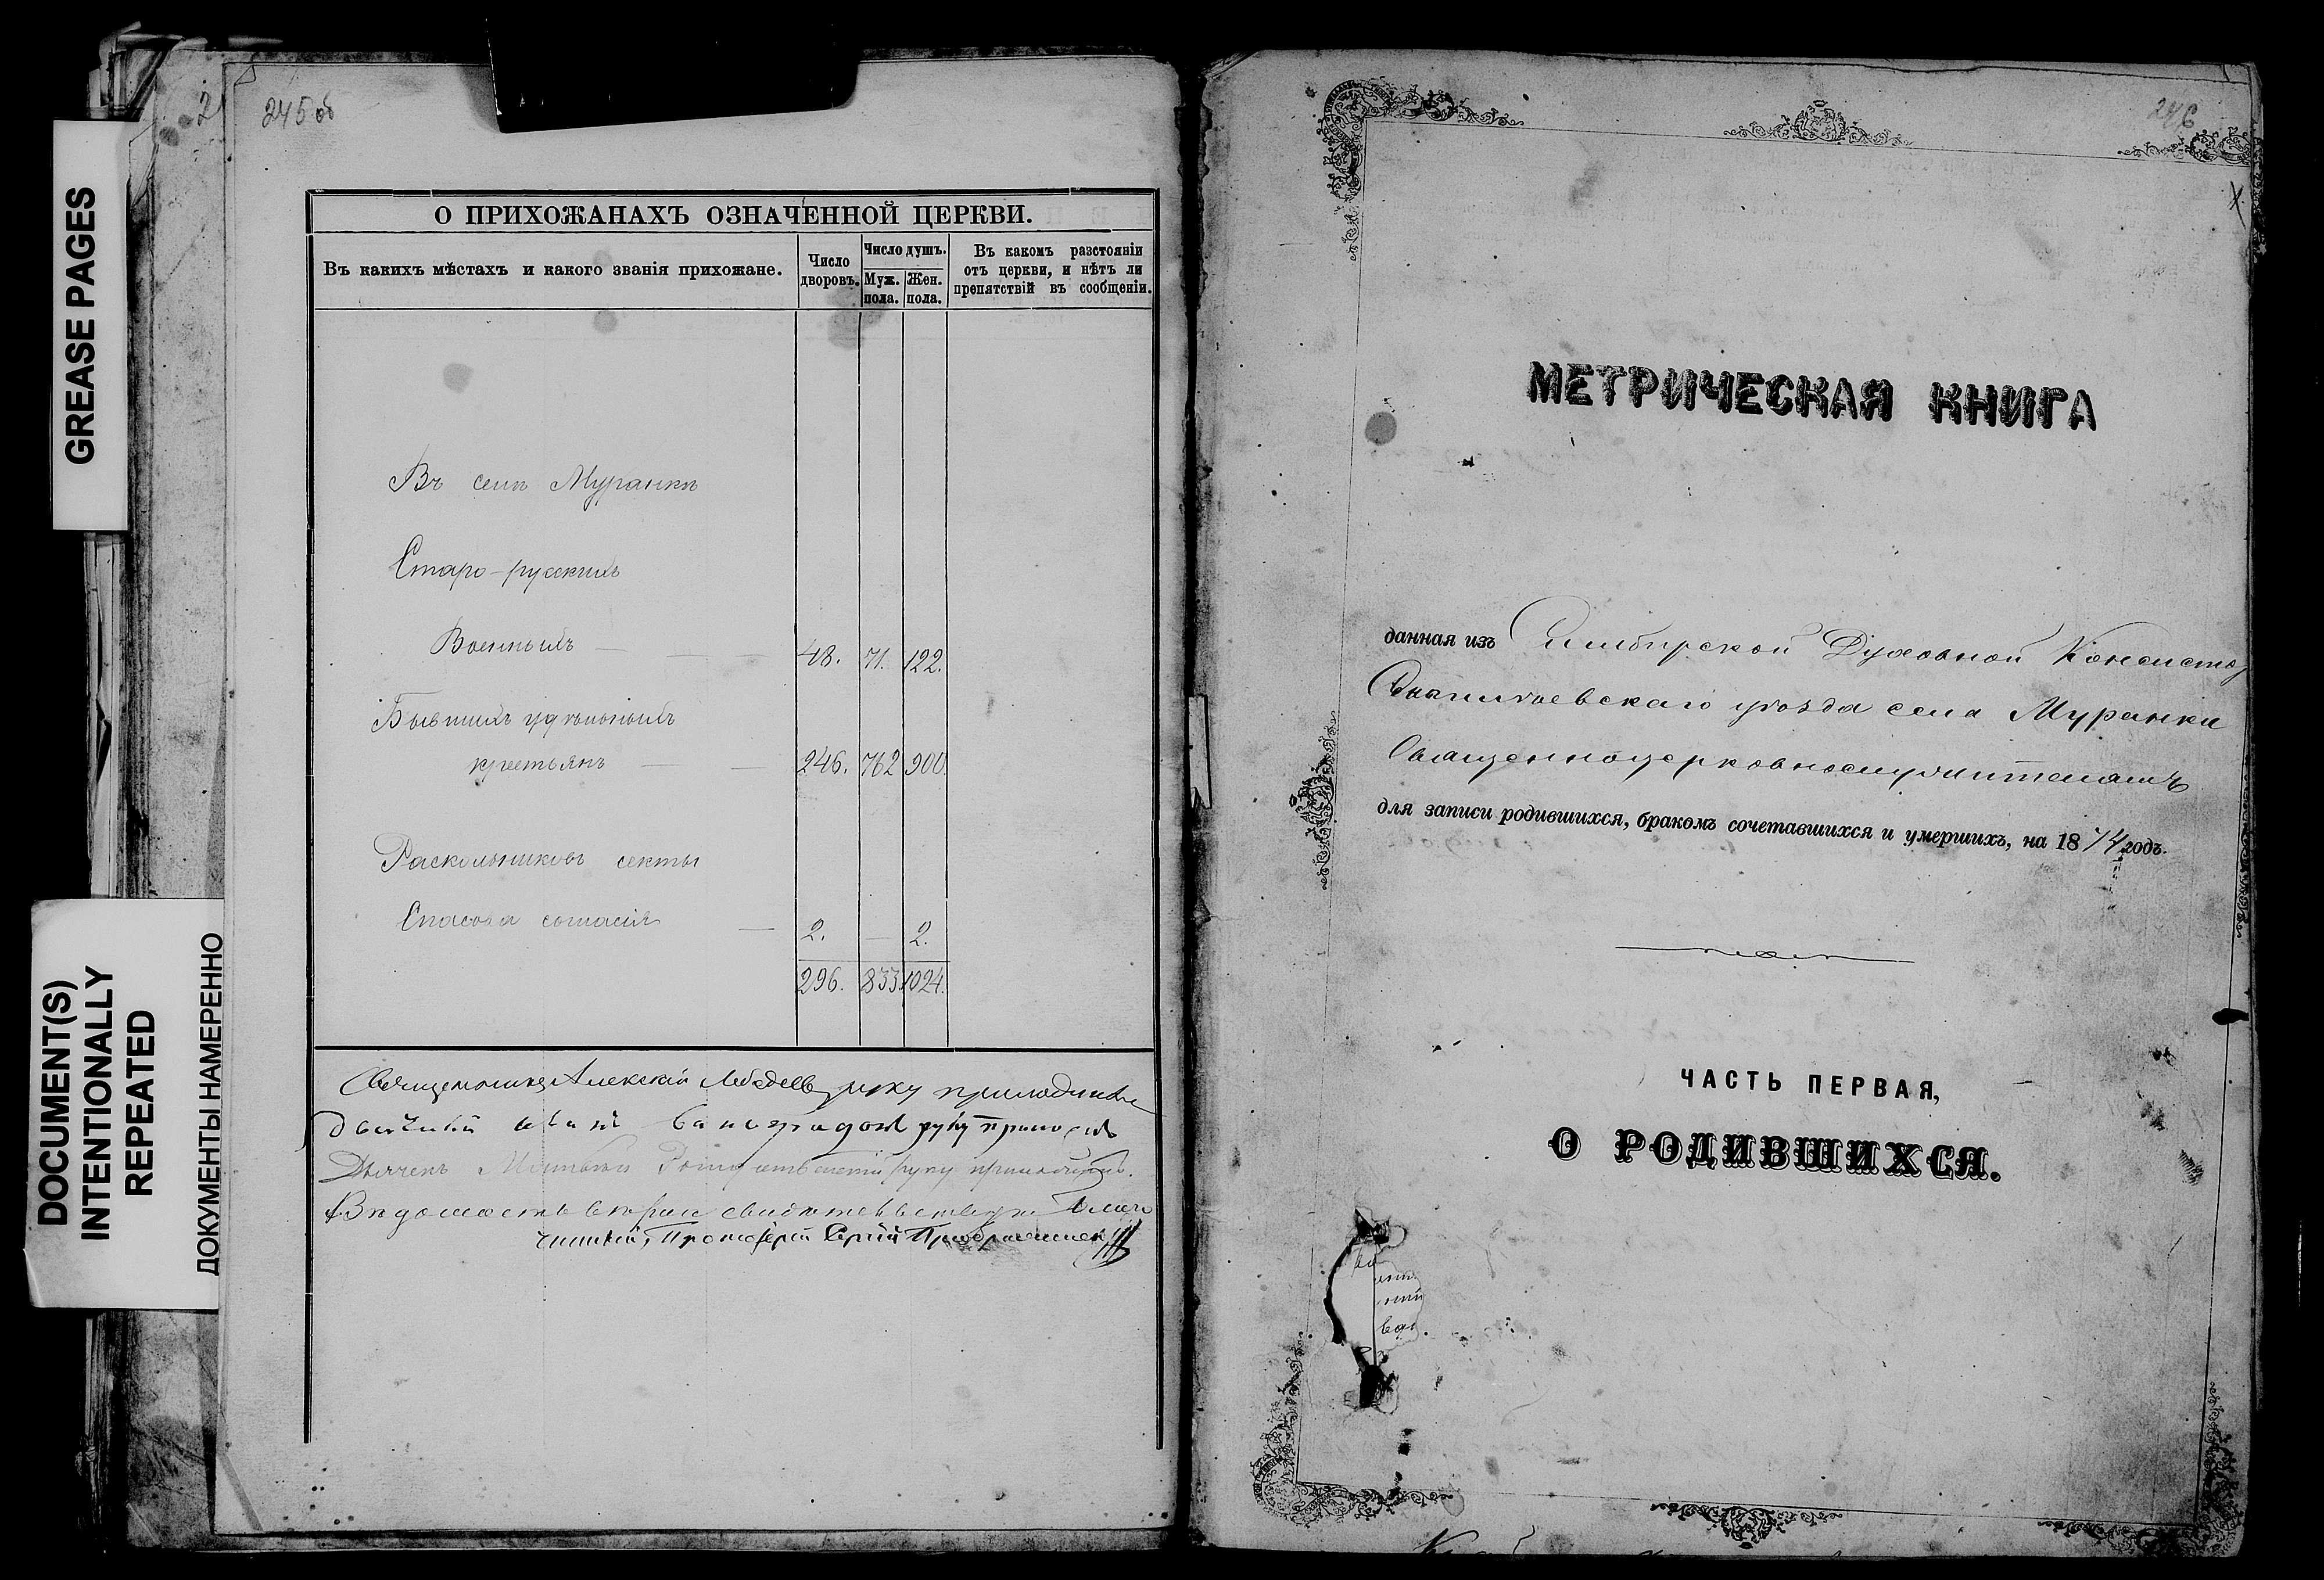 GREASE PAGES
DOCUMENT(S)
INTENTIONALLY
REPEATED
ДОКУМЕНТЫ НАМЕРЕННО
2
245 об
О ПРИХОЖАНАХЪ ОЗНАЧЕННОЙ ЦЕРКВИ.
Въ какихъ мѣстахъ и какого званія прихожане.
Число дворовъ.
Число душъ.
Муж. пола.
Жен. пола.
Въ какомъ разстояніи
отъ церкви, и нѣтъ ли
препятствій въ сообщеніи.
Въ селѣ Муранкѣ
Старо-русскихъ
Военныхъ — 48. 71. 122.
Бывшихъ удѣльныхъ
крестьянъ — 246. 762 900.
Раскольниковъ секты
Спасова согласія — 2. — 2.
296. 833. 1024.
Священникъ Алексѣй Лебедевъ руку приложилъ
руку приложилъ
Дьячекъ руку приложилъ.
Вѣдомость
чинный, Протоіерей Сергій
246
МЕТРИЧЕСКАЯ КНИГА
данная изъ Симбирской Духовной Консистор
уѣзда села Муранки
Священноцерковнослужителямъ
для записи родившихся, бракомъ сочетавшихся и умершихъ, на 1874 годъ.
ЧАСТЬ ПЕРВАЯ,
О РОДИВШИХСЯ.